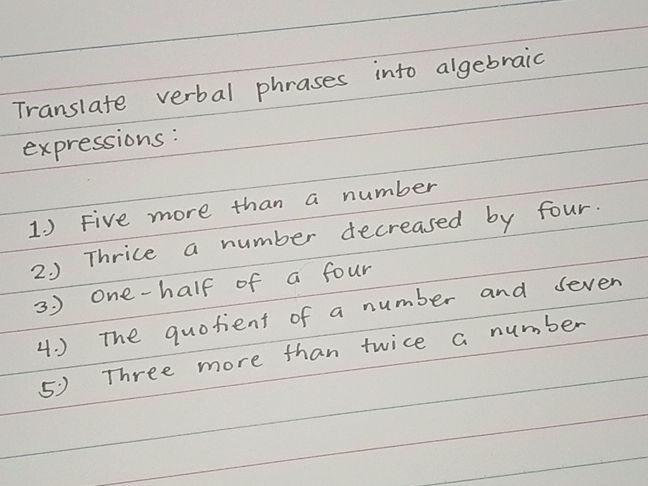 Translate verbal phrases into algebraic
expressions:
1.) Five more than a number
2.) Thrice a number decreased by four.
3.) One-half of a four
4.) The quotient of a number and seven
5.) Three more than twice a number